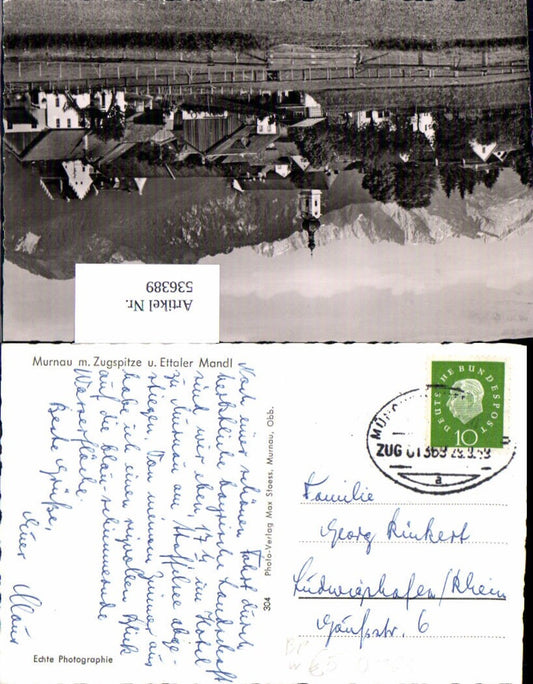 Artikel Nr.
536389
Murnau m. Zugspitze u. Ettaler Mandl
Nach einer schönen Fahrt durch
herbstliche bayrische Landschaft
sind wir eben, 17 h im Hotel
zu Murnau am Staffelsee abge-
stiegen. Von meinem Zimmer aus
habe ich einen reizvollen Blick
auf die blau schimmernde
Wasserfläche.
Beste Grüße,
Euer Klaus
Echte Photographie
304
Photo-Verlag Max Stoess, Murnau, Obb.
DEUTSCHE BUNDESPOST
10
ZUG 01369
a
Familie
Georg Rinkert
Ludwigshafen/Rhein
Gäußstr. 6